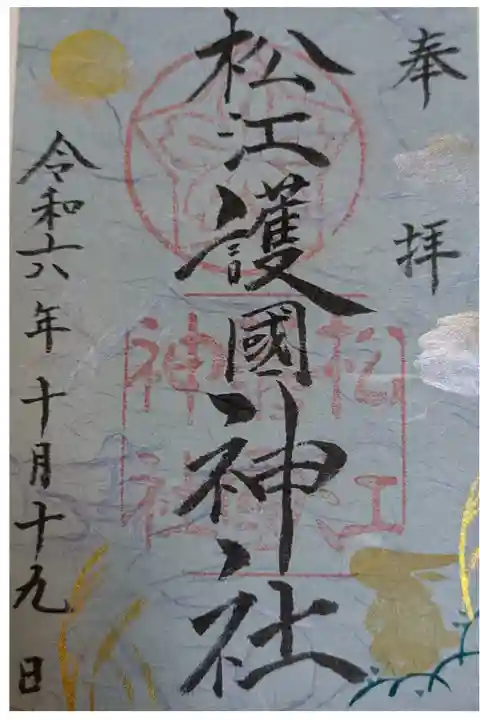 奉拝
松江護國神社
令和六年十月十九日
松江
護國
神社